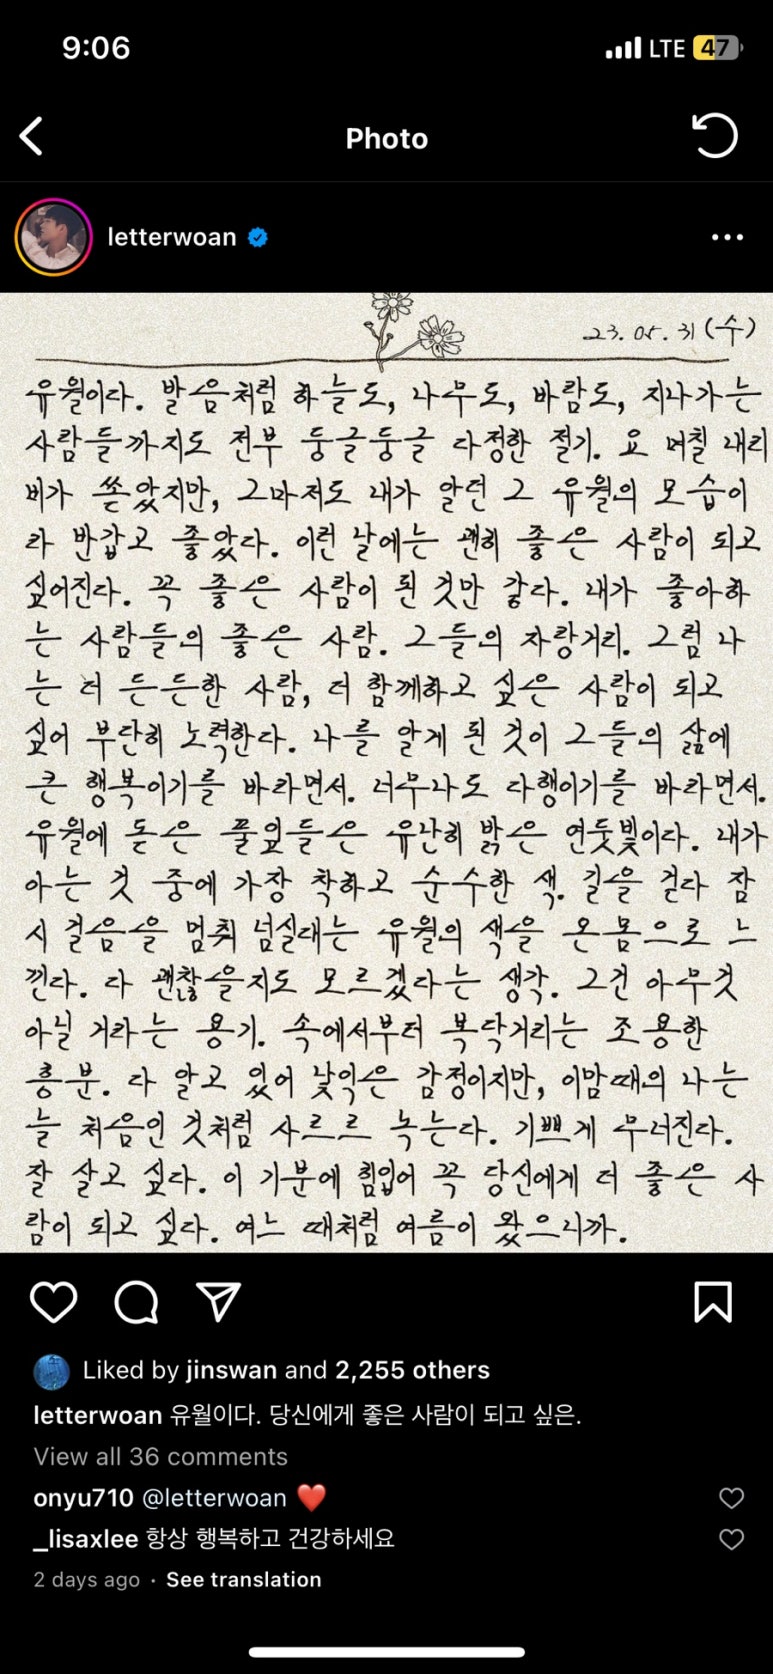 9:06
LTE 47
Photo
letterwoan
23. 05. 31 (수)
유월이다. 발음처럼 하늘도, 나무도, 바람도, 지나가는
사람들까지도 전부 둥글둥글 다정한 절기. 요 며칠 내리
비가 쏟았지만, 그마저도 내가 알던 그 유월의 모습이
라 반갑고 좋았다. 이런 날에는 괜히 좋은 사람이 되고
싶어진다. 꼭 좋은 사람이 된 것만 같다. 내가 좋아하
는 사람들의 좋은 사람. 그들의 자랑거리. 그럼 나
는 더 든든한 사람, 더 함께하고 싶은 사람이 되고
싶어 부단히 노력한다. 나를 알게 된 것이 그들의 삶에
큰 행복이기를 바라면서. 너무나도 다행이기를 바라면서.
유월에 돋은 풀잎들은 유난히 밝은 연둣빛이다. 내가
아는 것 중에 가장 착하고 순수한 색. 길을 걷다 잠
시 걸음을 멈춰 넘실대는 유월의 색을 온 몸으로 느
낀다. 다 괜찮을지도 모르겠다는 생각. 그건 아무것
아닐 거라는 용기. 속에서부터 복닥거리는 조용한
흥분. 다 알고 있어 낯익은 감정이지만, 이맘때의 나는
늘 처음인 것처럼 사르르 녹는다. 기쁘게 무너진다.
잘 살고 싶다. 이 기분에 힘입어 꼭 당신에게 더 좋은 사
람이 되고 싶다. 여느 때처럼 여름이 왔으니까.
Liked by jinswan and 2,255 others
letterwoan 유월이다. 당신에게 좋은 사람이 되고 싶은.
View all 36 comments
onyu710 @letterwoan ❤️
_lisaxlee 항상 행복하고 건강하세요
2 days ago · See translation